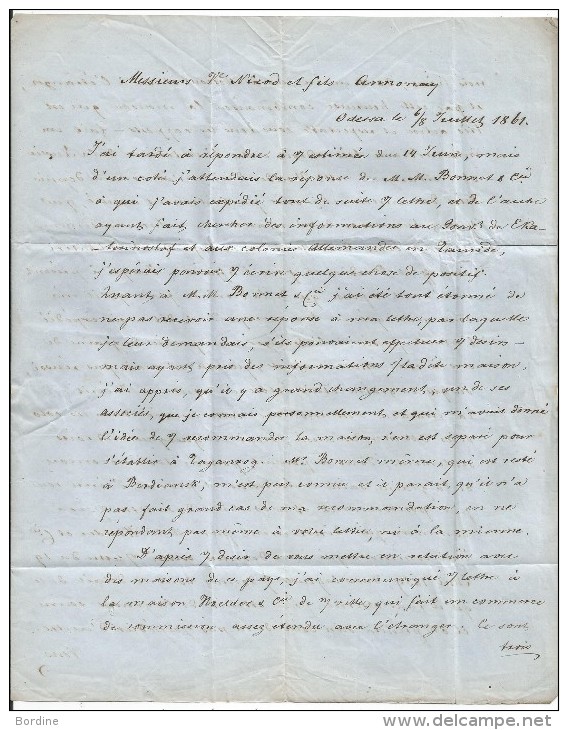 Messieurs Vve Nicod et fils Annonay
Odessa le 6/8 Juillet 1861.
J'ai tardé à répondre à V estimée du 14 Juin, mais
d'un coté j'attendais la réponse de M.M. Bonnet & Cie
à qui j'avais expédié tout de suite V lettre, et de l'autre
ayant fait chercher des informations au Gouvt. de Eka-
-terinoslof et aux colonies Allemandes en Tauride,
j'espérais pouvoir V écrire quelque chose de positif.
Quant à M.M. Bonnet & Cie, j'ai été tout étonné de
ne pas recevoir une réponse à ma lettre, par laquelle
je leur demandais, s'ils pouvaient effectuer V desir
mais ayant pris des informations s/ladite maison,
j'ai appris, qu'il y a grand changement, un de ses
associés, que je connais personnellement et qui m'avait donné
l'idée de V recommander la maison, s'en est separé pour
s'établir à Taganrog. Mr. Bonnet même, qui est resté
à Berdiansk, m'est peu connu et il parait, qu'il n'a
pas fait grand cas de ma recommandation, en ne
répondant pas même à votre lettre, ni à la mienne.
D'après V desir de vous mettre en relation avec
des maisons de ce pays, j'ai communiqué V lettre à
la maison & Cie de n/ ville, qui fait un commerce
de commission assez étendu avec l'étranger. Ce sont
trois
Bordine
www.delcampe.net